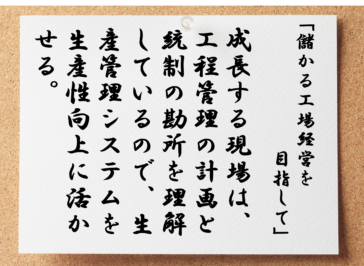 「儲かる工場経営を
目指して」
成長する現場は、
工程管理の計画と
統制の勘所を理解
しているので、生
産管理システムを
生産性向上に活か
せる。